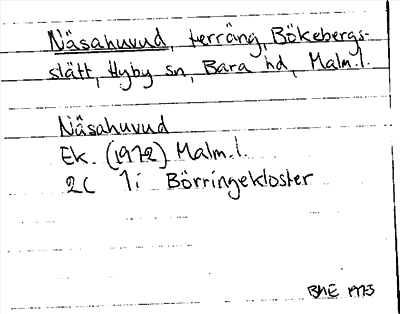 Näsahuvud, terräng, Bökebergs-
slätt, Hyby sn, Bara hd, Malm.l.
Näsahuvud
Ek. (1972) Malm.l.
2C 1i Börringekloster
BHE 1973